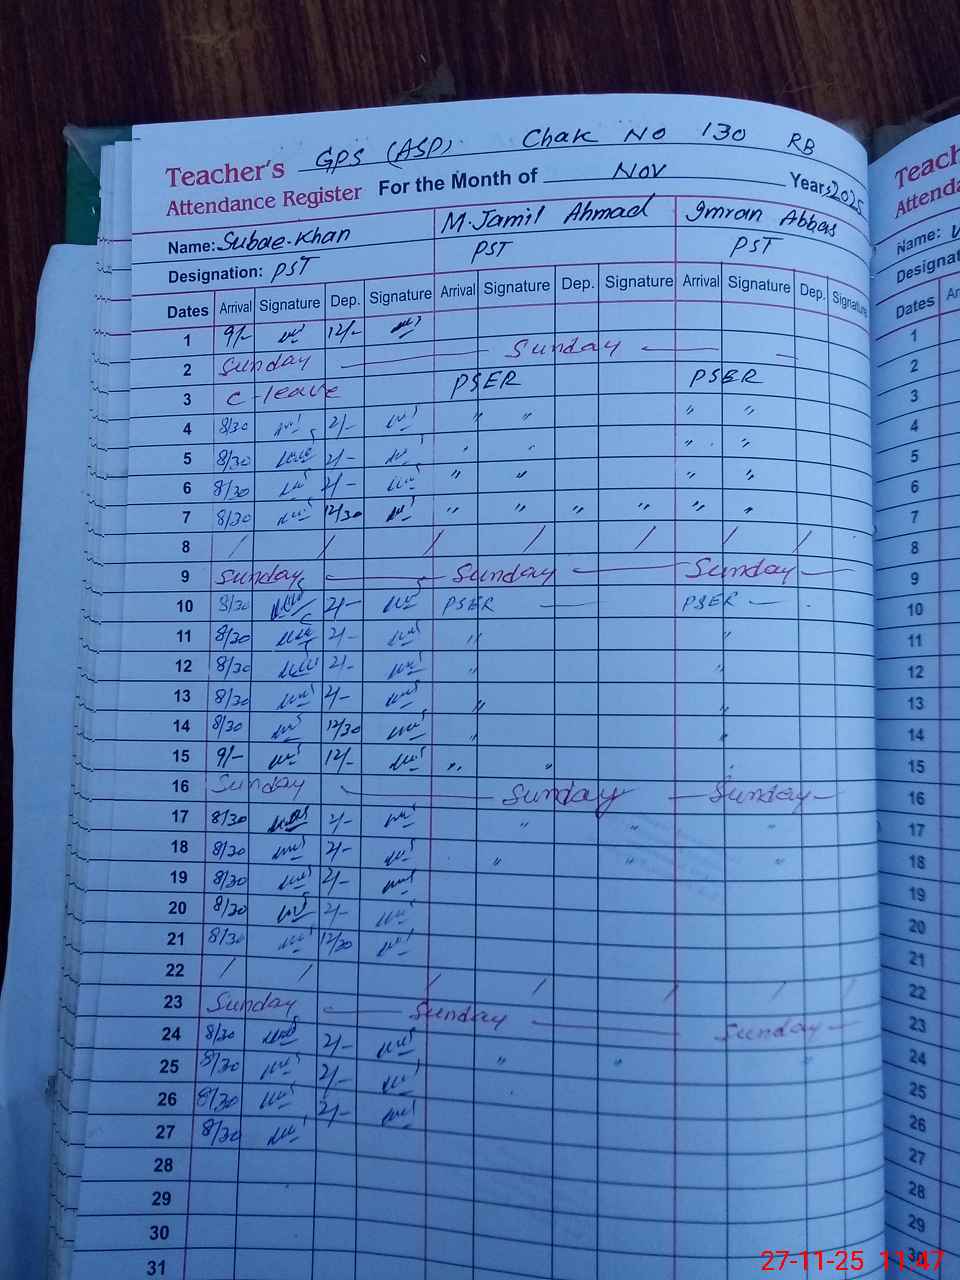 GPS (ASP). Chak No 130 RB
Teacher's
Attendance Register For the Month of Nov Year 2025
Name: Subae-Khan M. Jamil Ahmad Imran Abbas
Designation: PST PST PST
Dates Arrival Signature Dep. Signature Arrival Signature Dep. Signature Arrival Signature Dep. Signature
1 9/- 12/-
2 Sunday Sunday
3 C-leave PSER PSER
4 8/30 2/- " " " "
5 8/30 2/- " " " "
6 8/30 2/- " " " "
7 8/30 12/30 " " " " " "
8 / / / / / / /
9 Sunday Sunday Sunday
10 8/30 2/- PSER PSER
11 8/30 2/- " "
12 8/30 2/- " "
13 8/30 2/- " "
14 8/30 12/30 " "
15 9/- 12/- " " "
16 Sunday Sunday Sunday
17 8/30 2/- " " "
18 8/30 2/- " " "
19 8/30 2/-
20 8/30 2/-
21 8/30 12/30
22 / / / / / / /
23 Sunday Sunday Sunday
24 8/30 2/-
25 8/30 2/- " " "
26 8/30 2/-
27 8/30
28
29
30
31
Teach
Attenda
Name:
Designat
Dates Ar
1
2
3
4
5
6
7
8
9
10
11
12
13
14
15
16
17
18
19
20
21
22
23
24
25
26
27
28
29
30
27-11-25 11:47